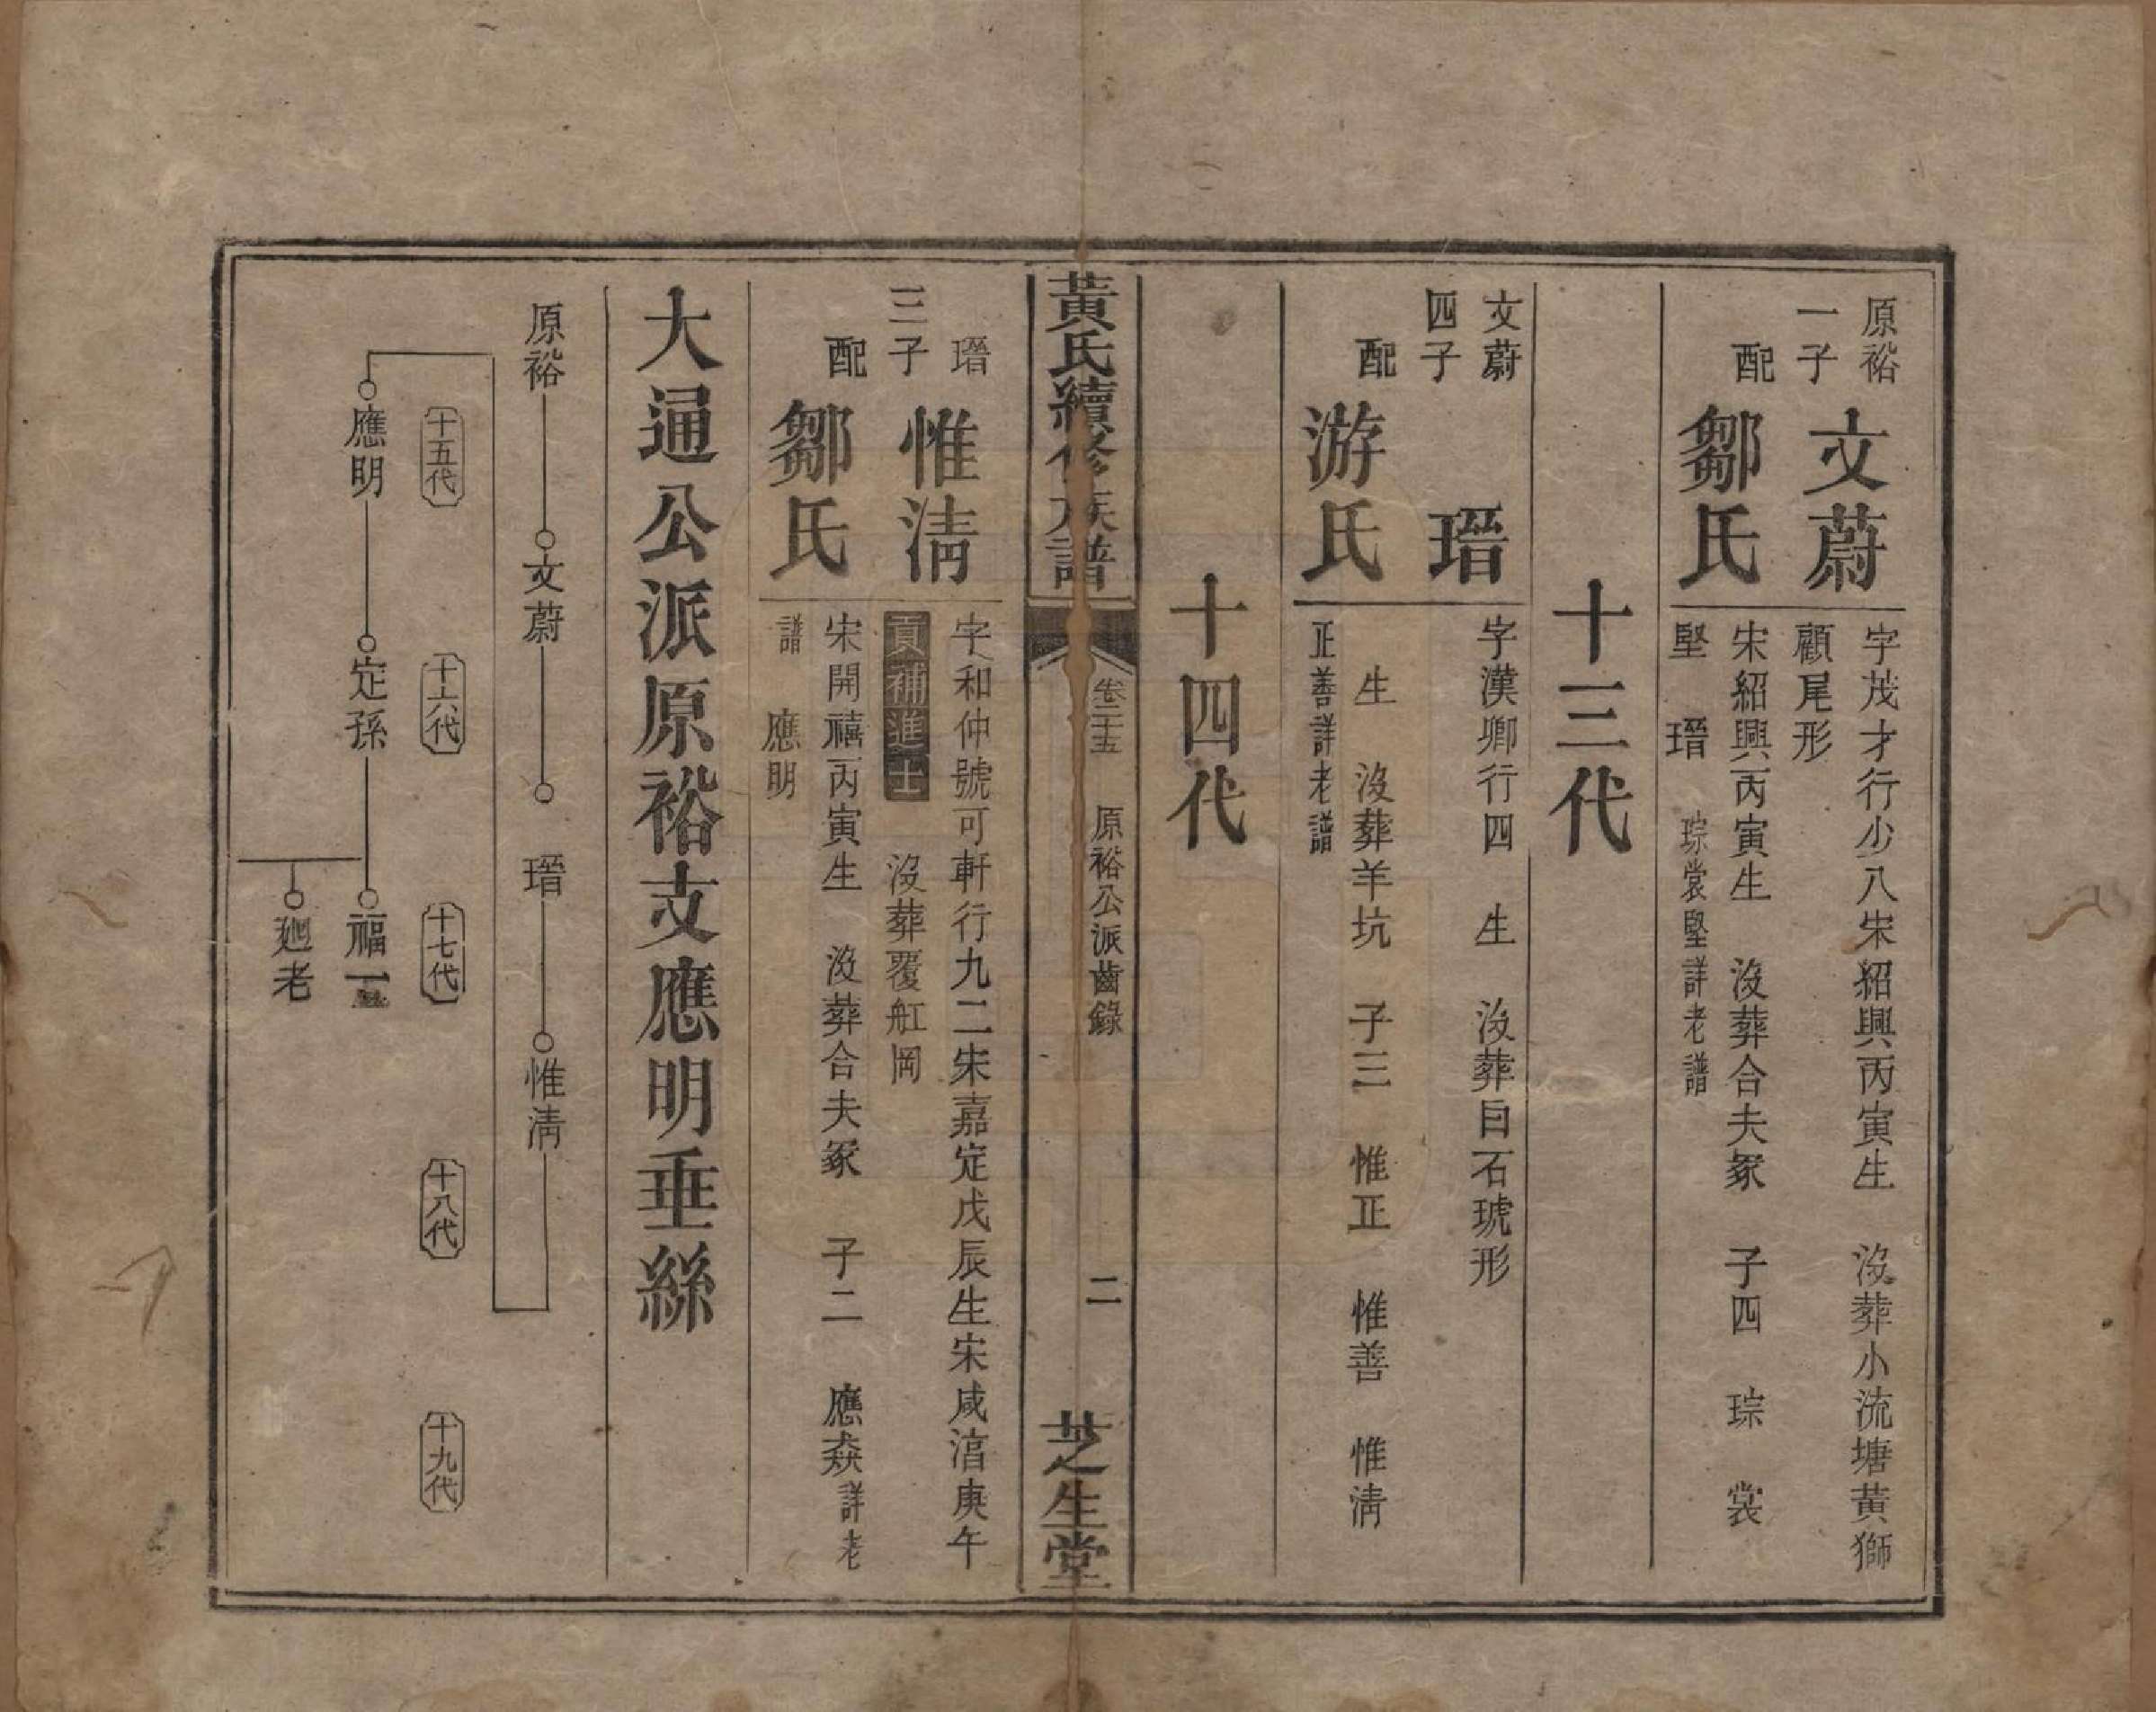 原裕
一子
文蔚
字茂才行少八宋紹興丙寅生 沒葬小流塘黃獅
顧尾形
配
鄒氏
宋紹興丙寅生 沒葬合夫冢 子四 琮 裳
堅 瑨 琮裳堅詳老譜
十三代
文蔚
四子
瑨
字漢卿行四 生 沒葬白石琥形
配
游氏
生 沒葬羊坑 子三 惟正 惟善 惟清
正善詳老譜
十四代
黃氏續修族譜
卷二十五
原裕公派齒錄
二
芝生堂
瑨
三子
惟清
字和仲號可軒行九二宋嘉定戊辰生宋咸淳庚午
貢補進士 沒葬覆舡岡
配
鄒氏
宋開禧丙寅生 沒葬合夫冢 子二 應焱詳老
譜 應明
大通公派原裕支應明垂絲
原裕 文蔚 瑨 惟清
十五代
十六代
十七代
十八代
十九代
應明 定孫 福一
廻老